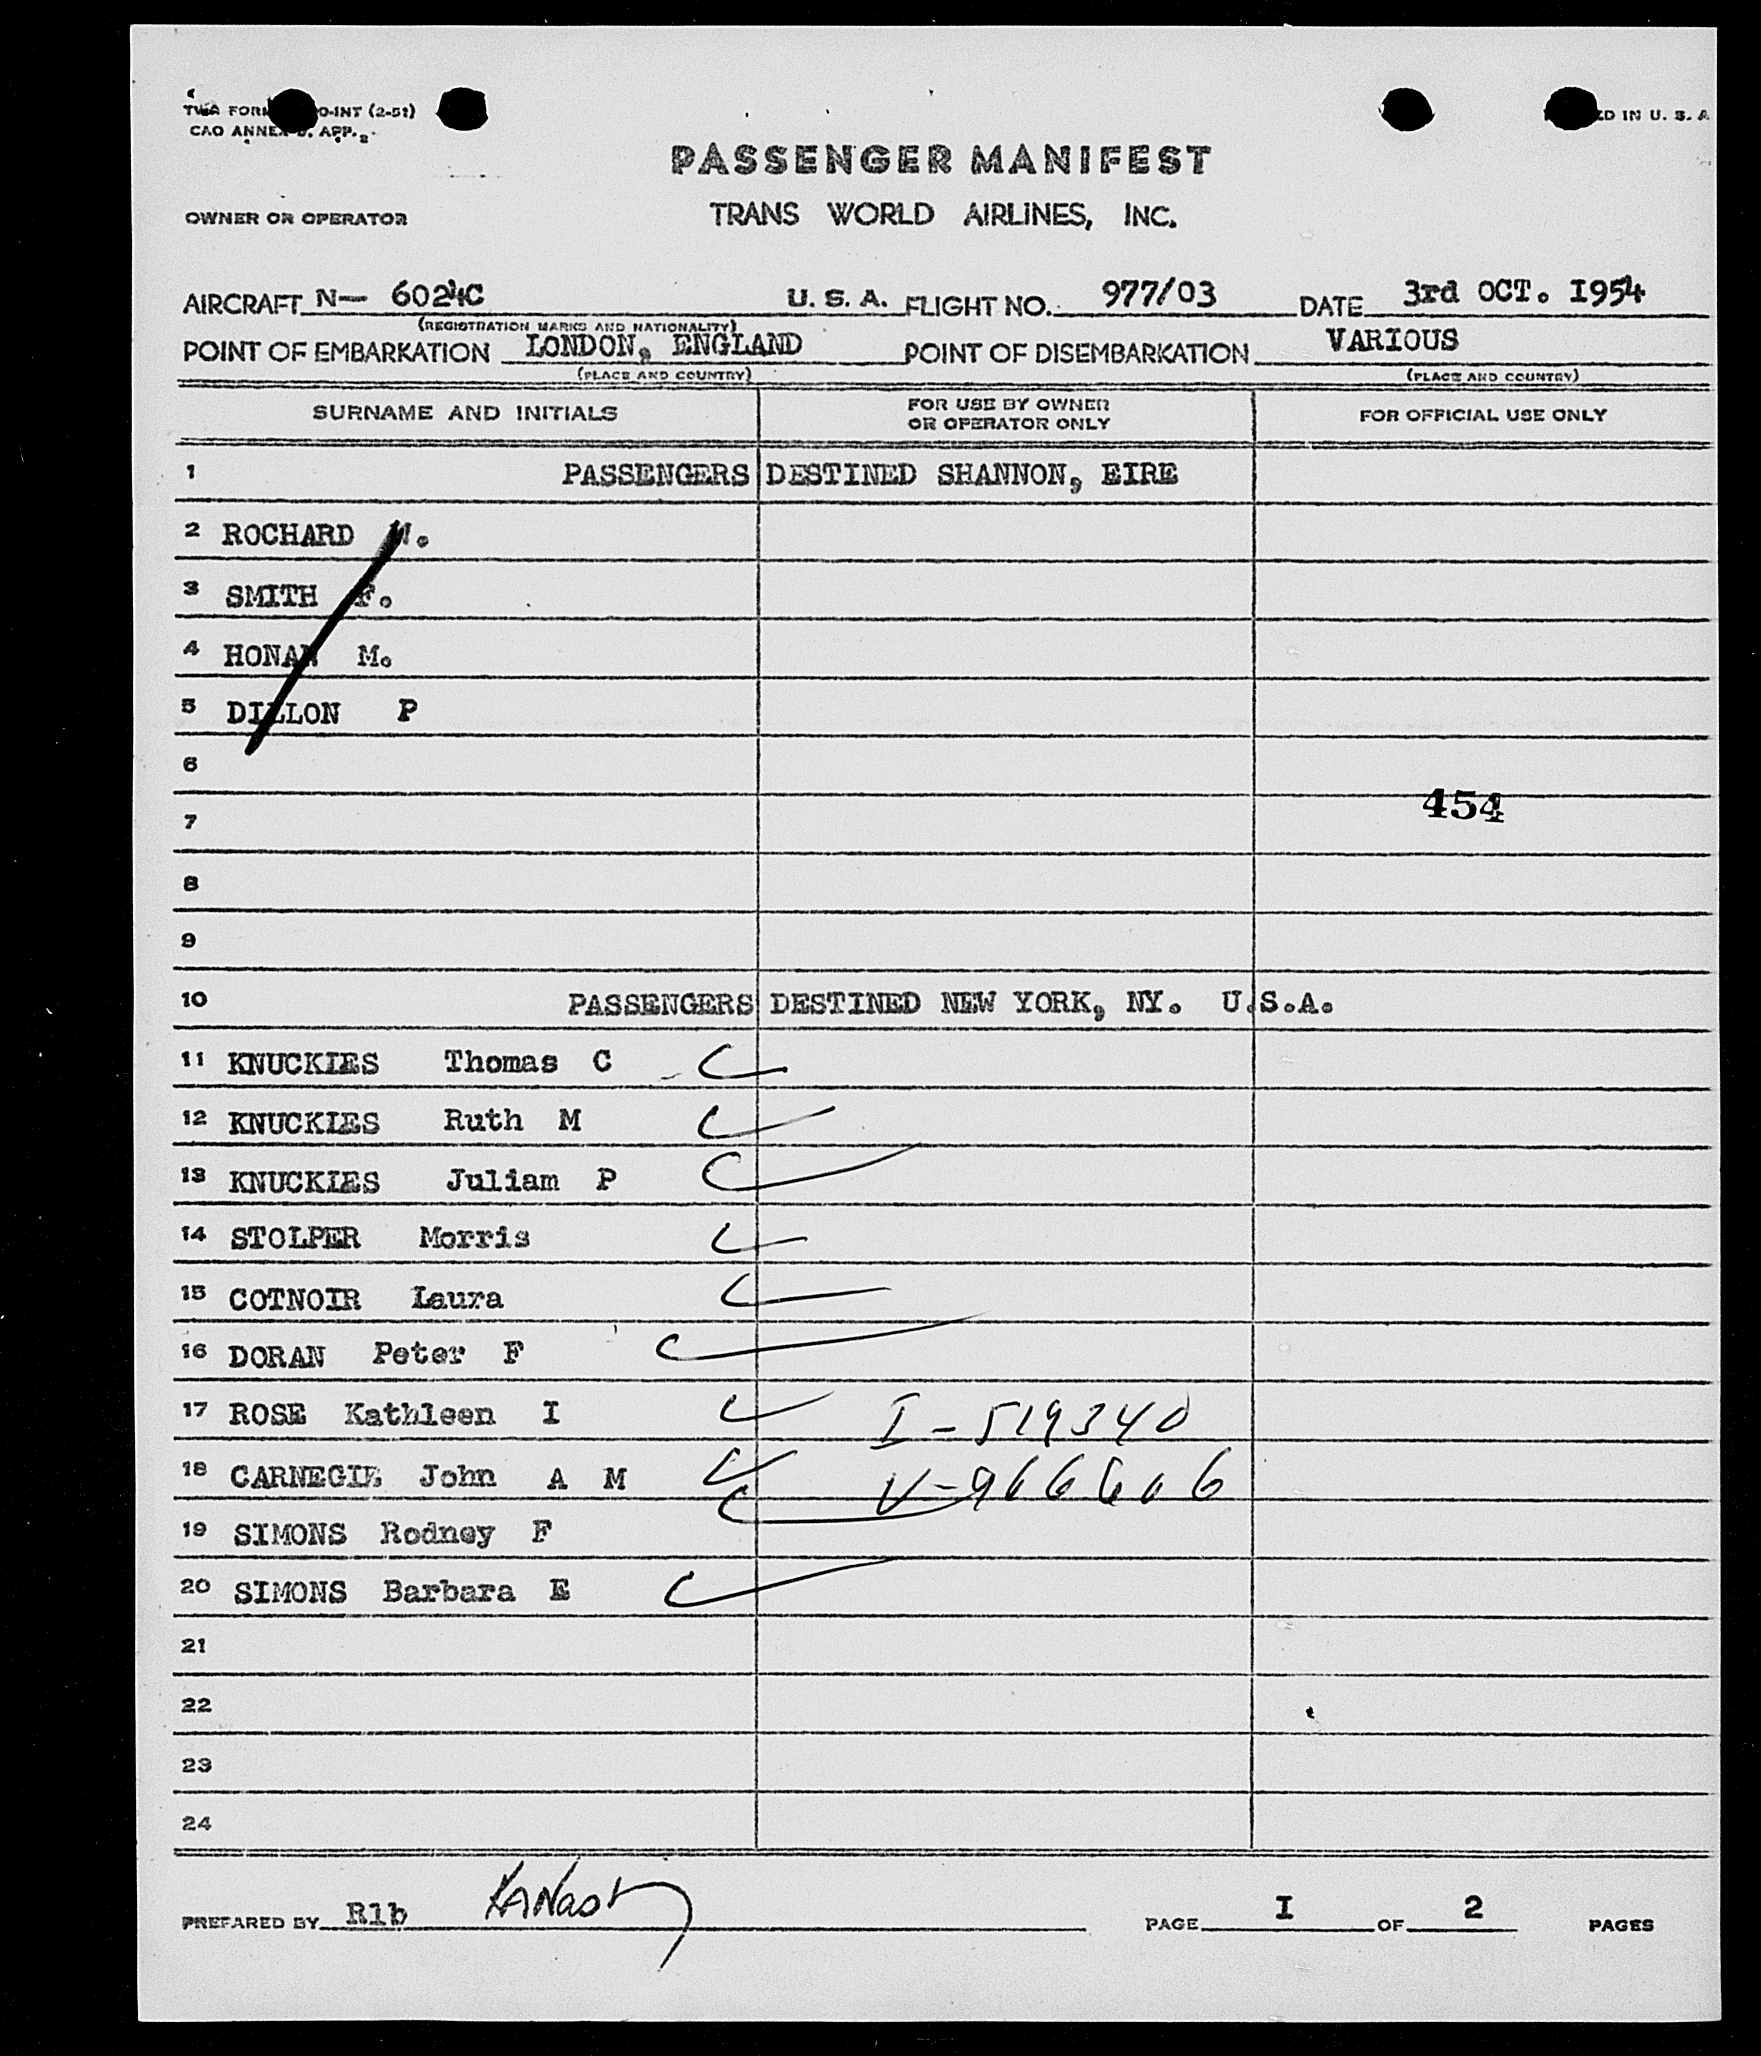 TWA FORM O-INT (2-51)
CAO ANNEX APP. 2
ED IN U. S. A
PASSENGER MANIFEST
OWNER OR OPERATOR
TRANS WORLD AIRLINES, INC.
AIRCRAFT N— 6024C U. S. A. FLIGHT NO. 977/03 DATE 3rd OCT. I954
(REGISTRATION MARKS AND NATIONALITY)
POINT OF EMBARKATION LONDON, ENGLAND POINT OF DISEMBARKATION VARIOUS
(PLACE AND COUNTRY) (PLACE AND COUNTRY)
SURNAME AND INITIALS FOR USE BY OWNER OR OPERATOR ONLY FOR OFFICIAL USE ONLY
1 PASSENGERS DESTINED SHANNON, EIRE
2 ROCHARD M.
3 SMITH F.
4 HONAN M.
5 DILLON P
6
454
7
8
9
10 PASSENGERS DESTINED NEW YORK, NY. U.S.A.
11 KNUCKIES Thomas C
12 KNUCKIES Ruth M
13 KNUCKIES Juliam P
14 STOLPER Morris
15 COTNOIR Laura
16 DORAN Peter F
17 ROSE Kathleen I I-519340
18 CARNEGIE John A M V-966606
19 SIMONS Rodney F
20 SIMONS Barbara E
21
22
23
24
PREPARED BY Rlb PAGE I OF 2 PAGES